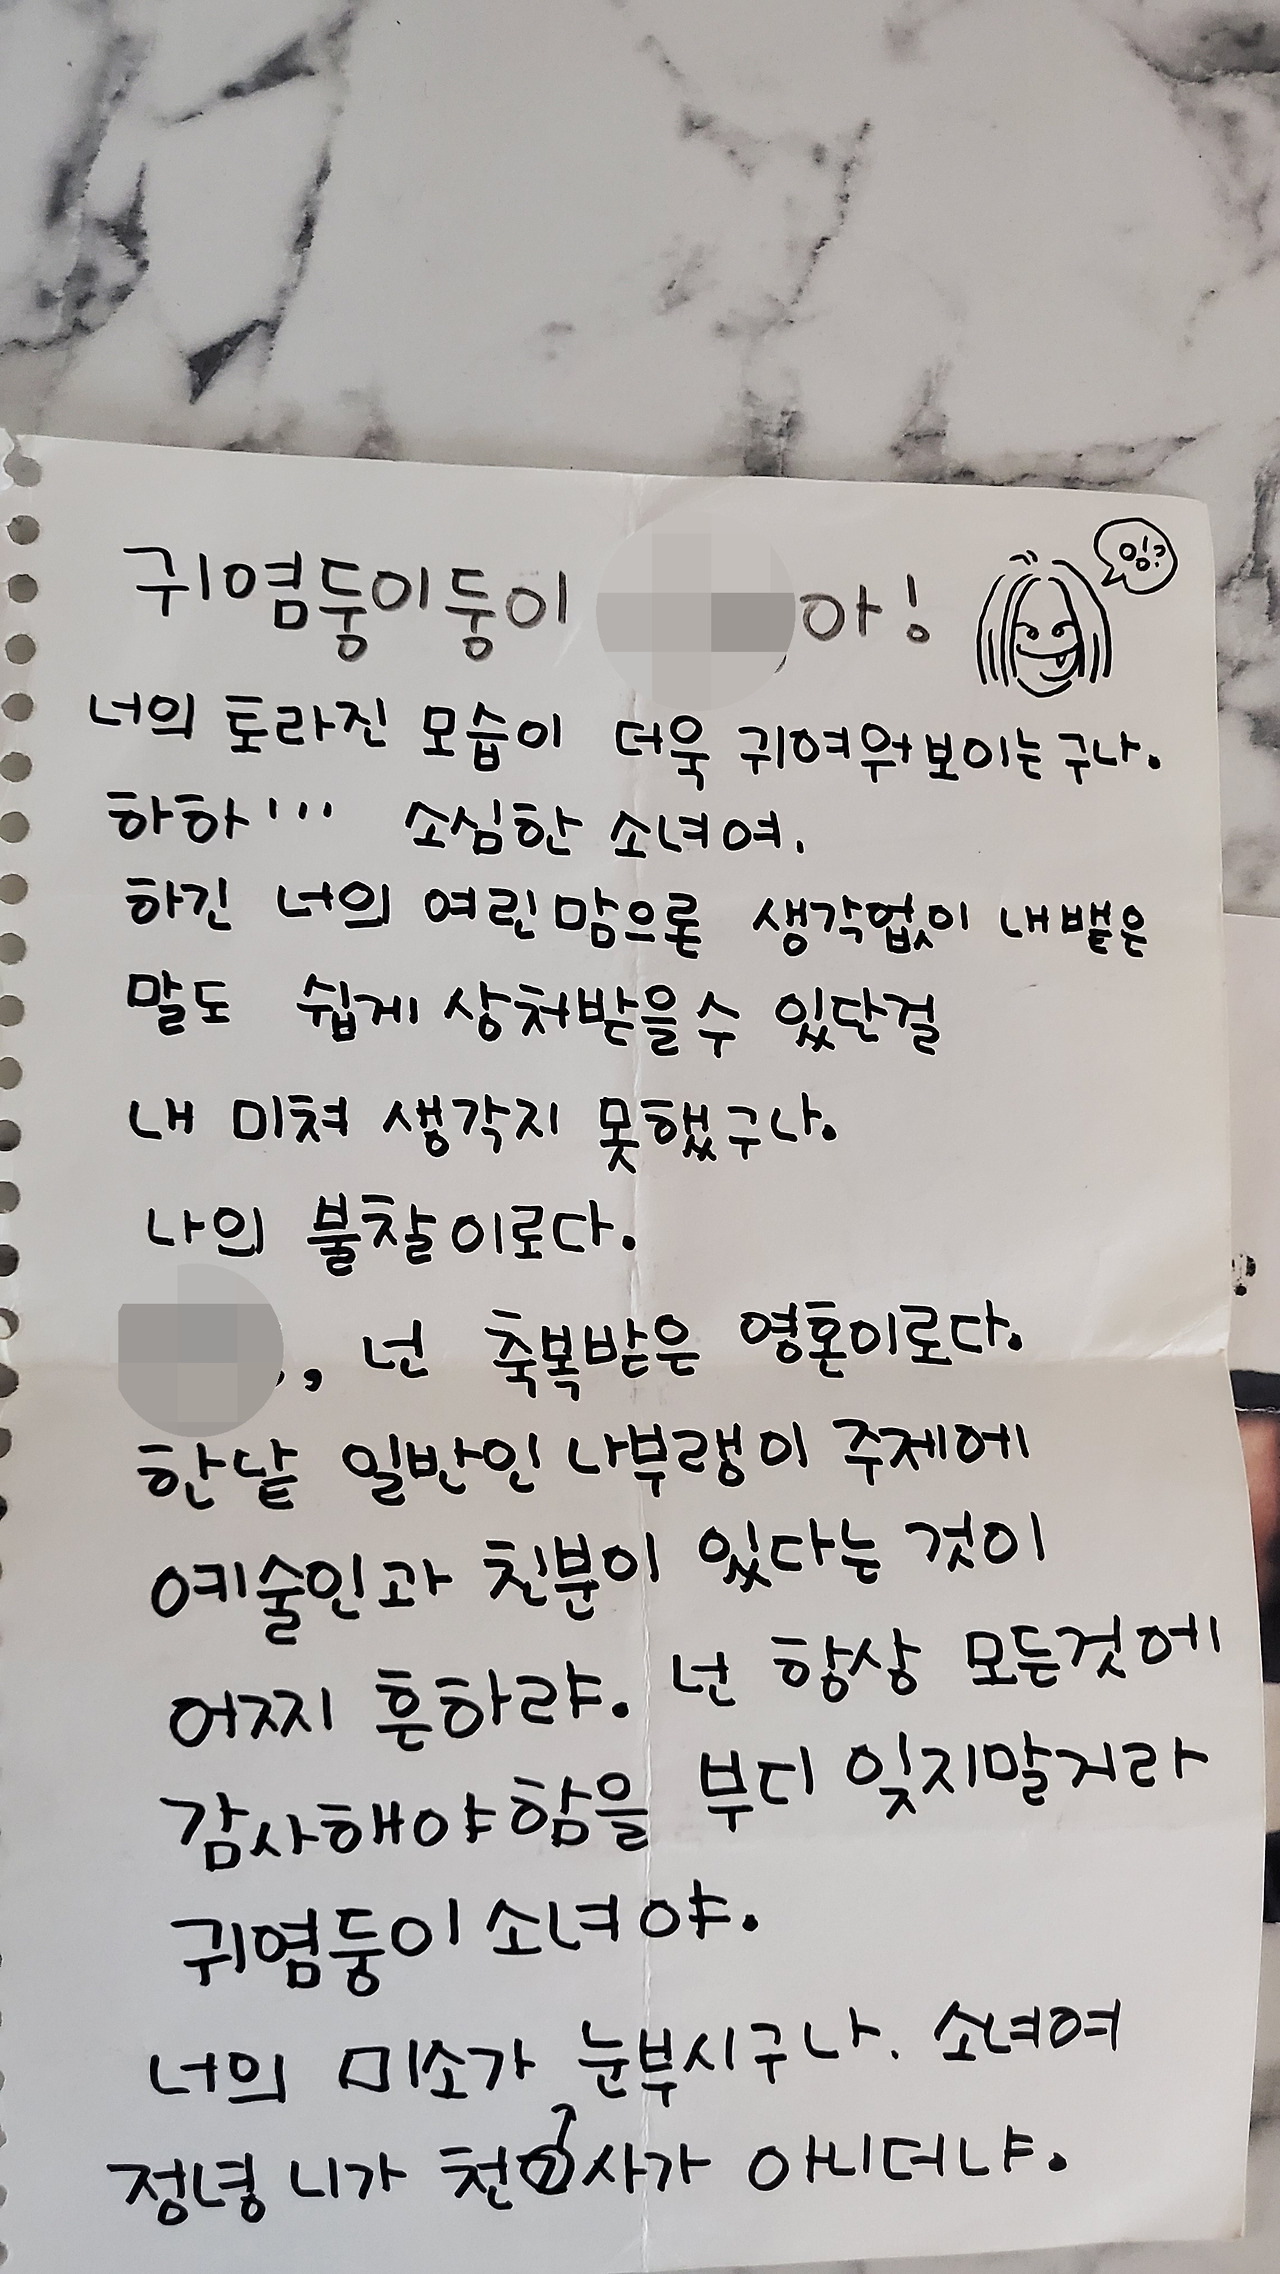 귀염둥이둥이 아!
잉?
너의 토라진 모습이 더욱 귀여워보이는구나.
하하··· 소심한 소녀여.
하긴 너의 여린맘으론 생각없이 내뱉은
말도 쉽게 상처받을수 있단걸
내 미쳐 생각지 못했구나.
나의 불찰이로다.
, 넌 축복받은 영혼이로다.
한낱 일반인 나부랭이 주제에
예술인과 친분이 있다는 것이
어찌 흔하랴. 넌 항상 모든것에
감사해야함을 부디 잊지말거라
귀염둥이 소녀야.
너의 미소가 눈부시구나. 소녀여
정녕 니가 천사가 아니더냐.